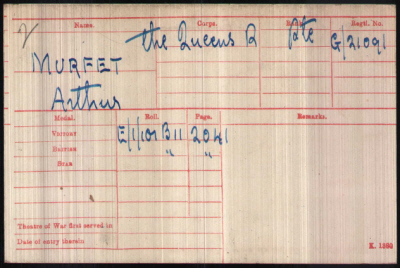 Name. Corps. Rank. Regtl. No.
MURFET The Queens R Pte G/21091
Arthur
Medal. Roll. Page. Remarks.
VICTORY E/1/101 B11 2041
BRITISH " "
STAR
Theatre of War first served in
Date of entry therein
K. 1380